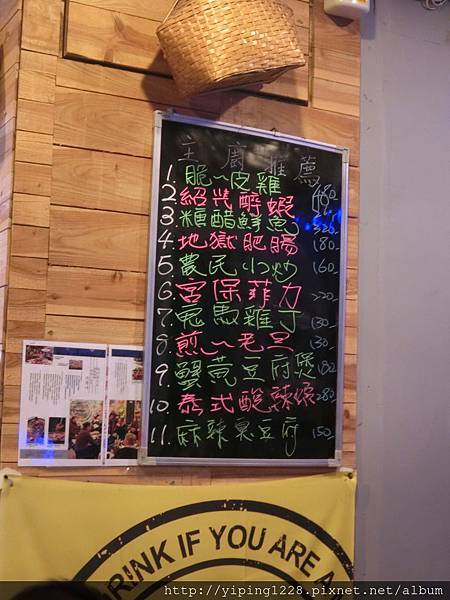 主廚推薦
1. 脆~皮雞 480
2. 紹興醉蝦
3. 糖醋鮮魚 320
4. 地獄肥腸 180
5. 農民小炒 160
6. 宮保菲力 220
7. 鬼馬雞丁 130
8. 煎~老豆 130
9. 蟹黃豆府煲 180
10. 泰式酸辣蝦 280
11. 麻辣臭豆府 150
DRINK IF YOU ARE A
http://yiping1228.pixnet.net/album